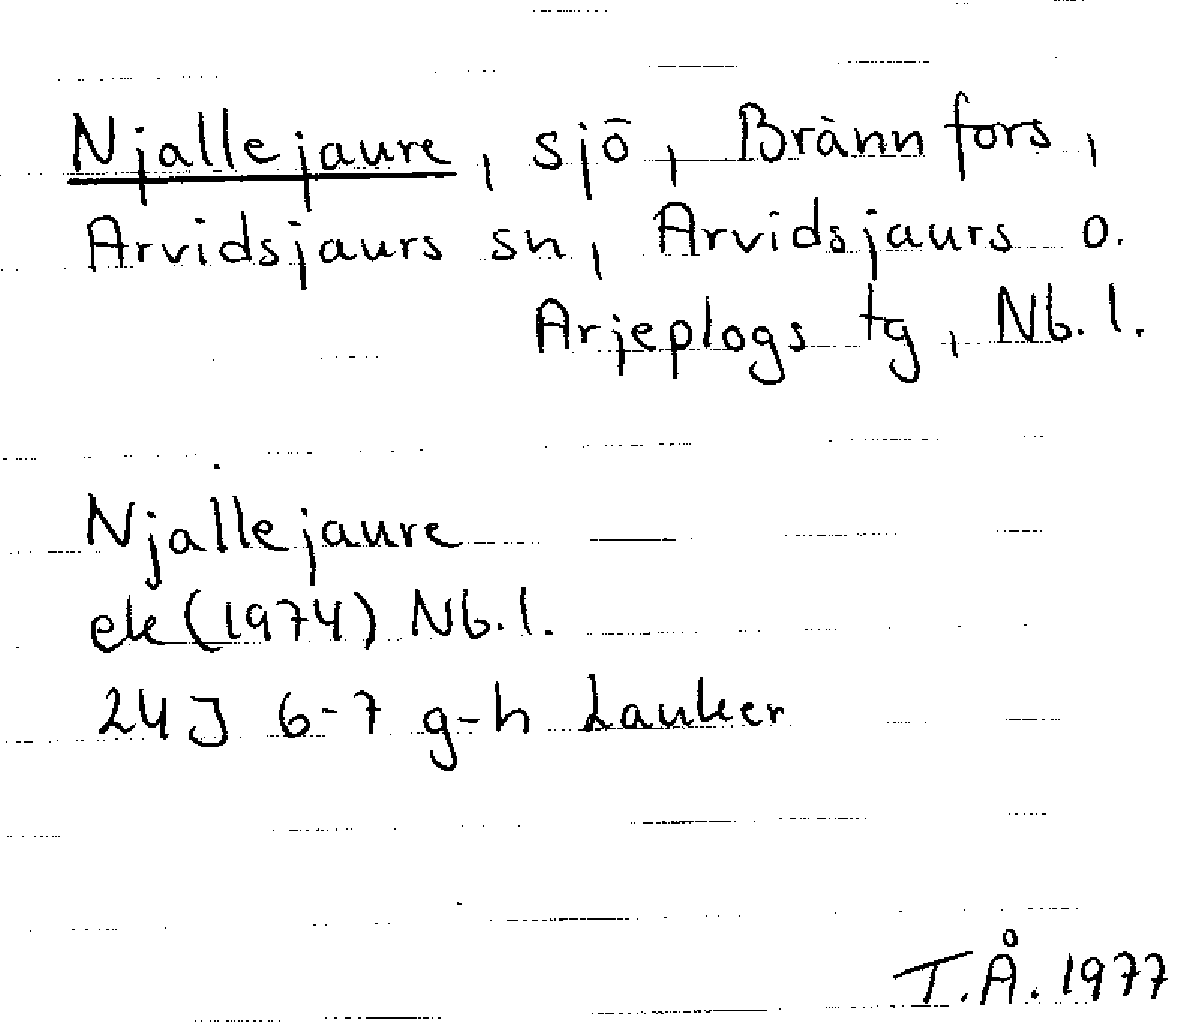 Njallejaure, sjö, Brännfors,
Arvidsjaurs sn, Arvidsjaurs o.
Arjeplogs tg, Nb. l.
Njallejaure
ek (1974) Nb. l.
24J 6-7 g-h Lauker
T.Å. 1977